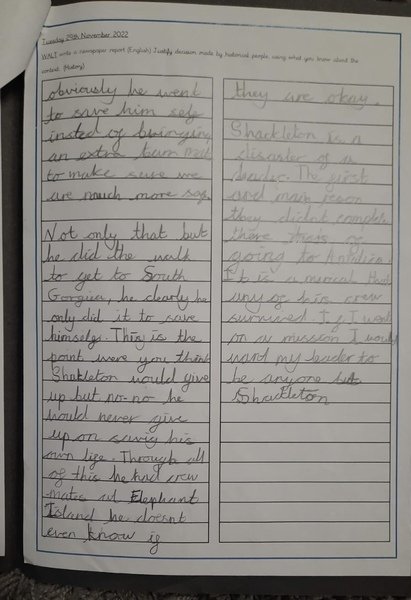 Tuesday 29th November 2022
WALT write a newspaper report (English) Justify decision made by historical people, using what you know about the
context. (History)
obviously he went
to save him self
insted of bwinging
an extra team mate
to make sure we
are much more safe.
Not only that but
he did the walk
to get to South
Gorgiua, he clearly he
only did it to save
himself. This is the
point were you think
Shakleton would give
up but no-no he
would never give
up on savig his
own life. Through all
of this he had crew
mates at Elephant
Island he doesnt
even know if
they are okay.
Shackleton is a
disaster of a
leader. The first
and main reson
they didnt complete
there task of
going to
It is a mirical that
any of his crew
survived. If I went
on a mission I would
want my leader to
be anyone but
Shackleton